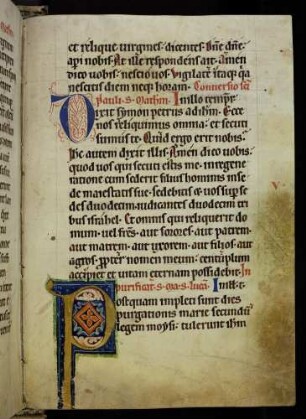 et relique uirgines dicentes. Dñe dñe
api nobis. At ille respondens ait. Amen
dico uobis nescio uos. Vigilate itaq; qa
nescitis diem neq; horam. Conuersio sci
pauli. s. Mathm. In illo tempr
Dixit symon petrus ad ihm. Ecce
nos reliquimus omnia. et secuti
sumus te. Quid ergo erit nobis.
Ihc autem dixit illis. Amen dico uobis.
quod uos qui secuti estis me. in regene
ratione cum sederit filius hominis in se
de maiestatis sue. sedebitis et uos sup se
des duodecim. iudicantes duodecim tri
bus israhel. Et omnis qui reliquerit do
mum. uel fres. aut sorores. aut patrem.
aut matrem. aut uxorem. aut filios. aut
agros. propter nomen meum. centuplum
accipiet et uitam eternam possidebit. In
purificat. s. lucã. In ill. t.
Postquam impleti sunt dies
purgationis marie secundũ
legem moysi. tulerunt ihm